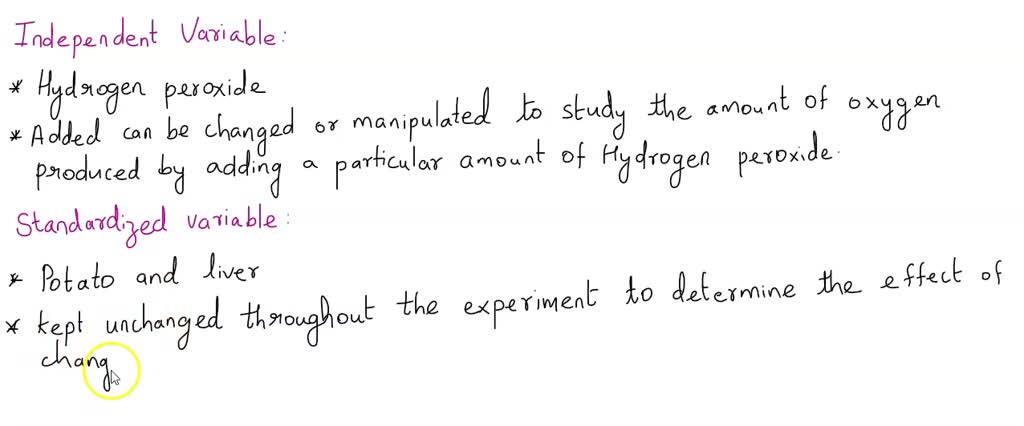 Independent Variable:
* Hydrogen peroxide
* Added can be changed or manipulated to study the amount of oxygen
produced by adding a particular amount of Hydrogen peroxide.
Standardized variable:
* Potato and liver
* kept unchanged throughout the experiment to determine the effect of
chang